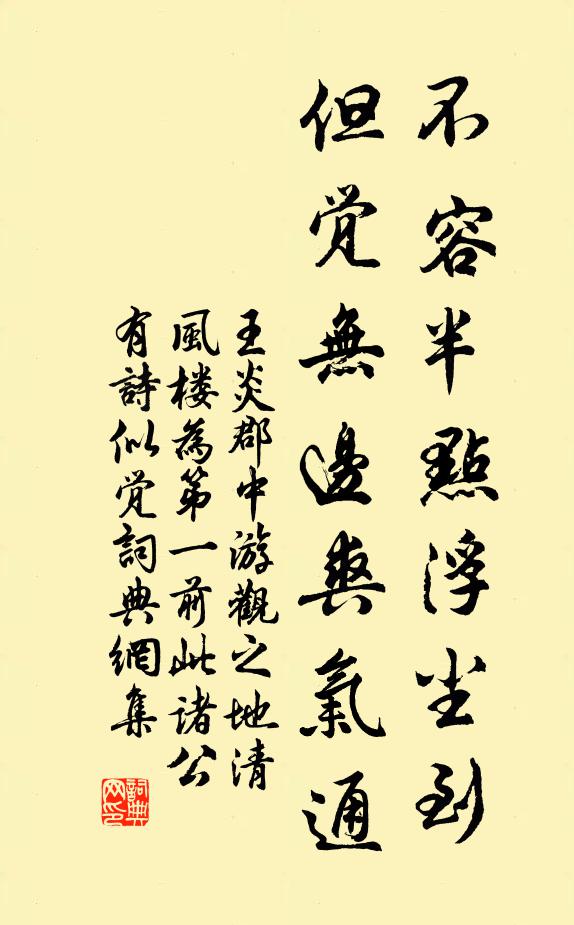 不容半點浮尘到
但觉無邊爽氣通
王炎郡中游觀之地清
風楼為第一前此诸公
有詩似觉詞典網集
詞典网印